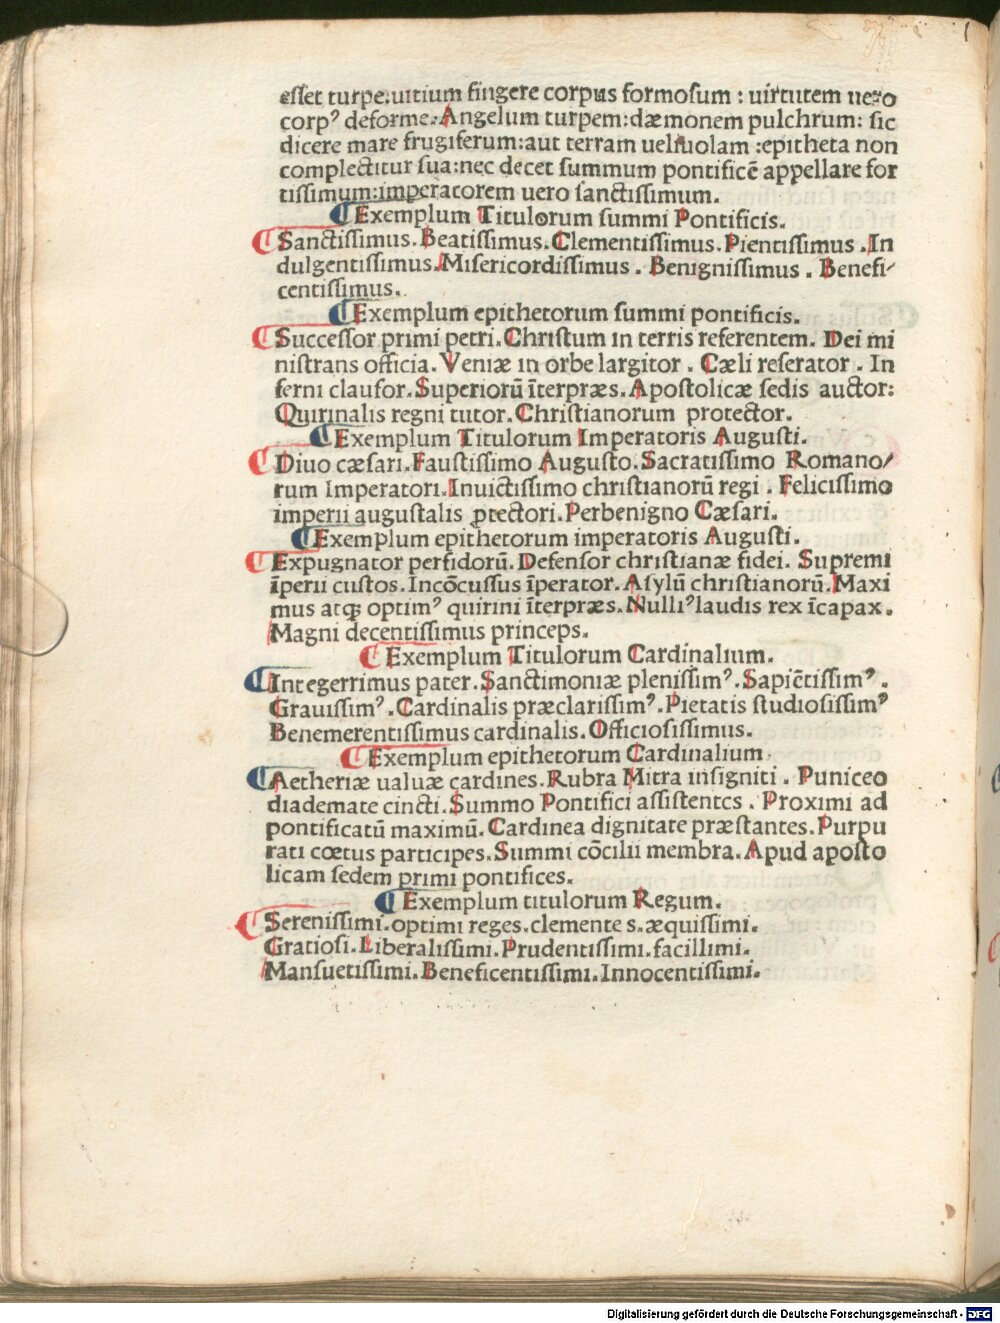 esset turpe:uitium fingere corpus formosum : uirtutem uero
corpꝰ deforme:Angelum turpem:dæmonem pulchrum: sic
dicere mare frugiferum:aut terram ueliuolam :epitheta non
complectitur sua:nec decet summum pontificē appellare for
tissimum:imperatorem uero sanctissimum.
¶Exemplum Titulorum summi Pontificis.
¶Sanctissimus.Beatissimus.Clementissimus.Pientissimus .In
dulgentissimus.Misericordissimus . Benignissimus . Benefi⸗
centissimus.
¶Exemplum epithetorum summi pontificis.
¶Successor primi petri.Christum in terris referentem. Dei mi
nistrans officia. Veniæ in orbe largitor . Cæli reserator . In
ferni clausor.Superiorū īterpræs.Apostolicæ sedis auctor:
Quirinalis regni tutor.Christianorum protector.
¶Exemplum Titulorum Imperatoris Augusti.
¶Diuo cæsari.Faustissimo Augusto.Sacratissimo Romano⸗
rum Imperatori.Inuictissimo christianorū regi . Felicissimo
imperii augustalis ꝓtectori.Perbenigno Cæsari.
¶Exemplum epithetorum imperatoris Augusti.
¶Expugnator perfidorū.Defensor christianæ fidei. Supremi
īperii custos.Incōcussus īperator.Asylū christianorū.Maxi
mus atqꝫ optimꝰ quirini īterpræs.Nulliꝰ laudis rex īcapax.
Magni decentissimus princeps.
¶Exemplum Titulorum Cardinalium.
¶Integerrimus pater.Sanctimoniæ plenissimꝰ.Sapiētissimꝰ.
Grauissimꝰ.Cardinalis præclarissimꝰ.Pietatis studiosissimꝰ
Benemerentissimus cardinalis.Officiosissimus.
¶Exemplum epithetorum Cardinalium.
¶Aetheriæ ualuæ cardines.Rubra Mitra insigniti . Puniceo
diademate cincti.Summo Pontifici assistentes . Proximi ad
pontificatū maximū.Cardinea dignitate præstantes.Purpu
rati cœtus participes.Summi cōcilii membra.Apud aposto
licam sedem primi pontifices.
¶Exemplum titulorum Regum.
¶Serenissimi.optimi reges.clemente s.æquissimi.
Gratiosi.Liberalissimi.Prudentissimi.facillimi.
Mansuetissimi.Beneficentissimi.Innocentissimi.
Digitalisierung gefördert durch die Deutsche Forschungsgemeinschaft - DFG